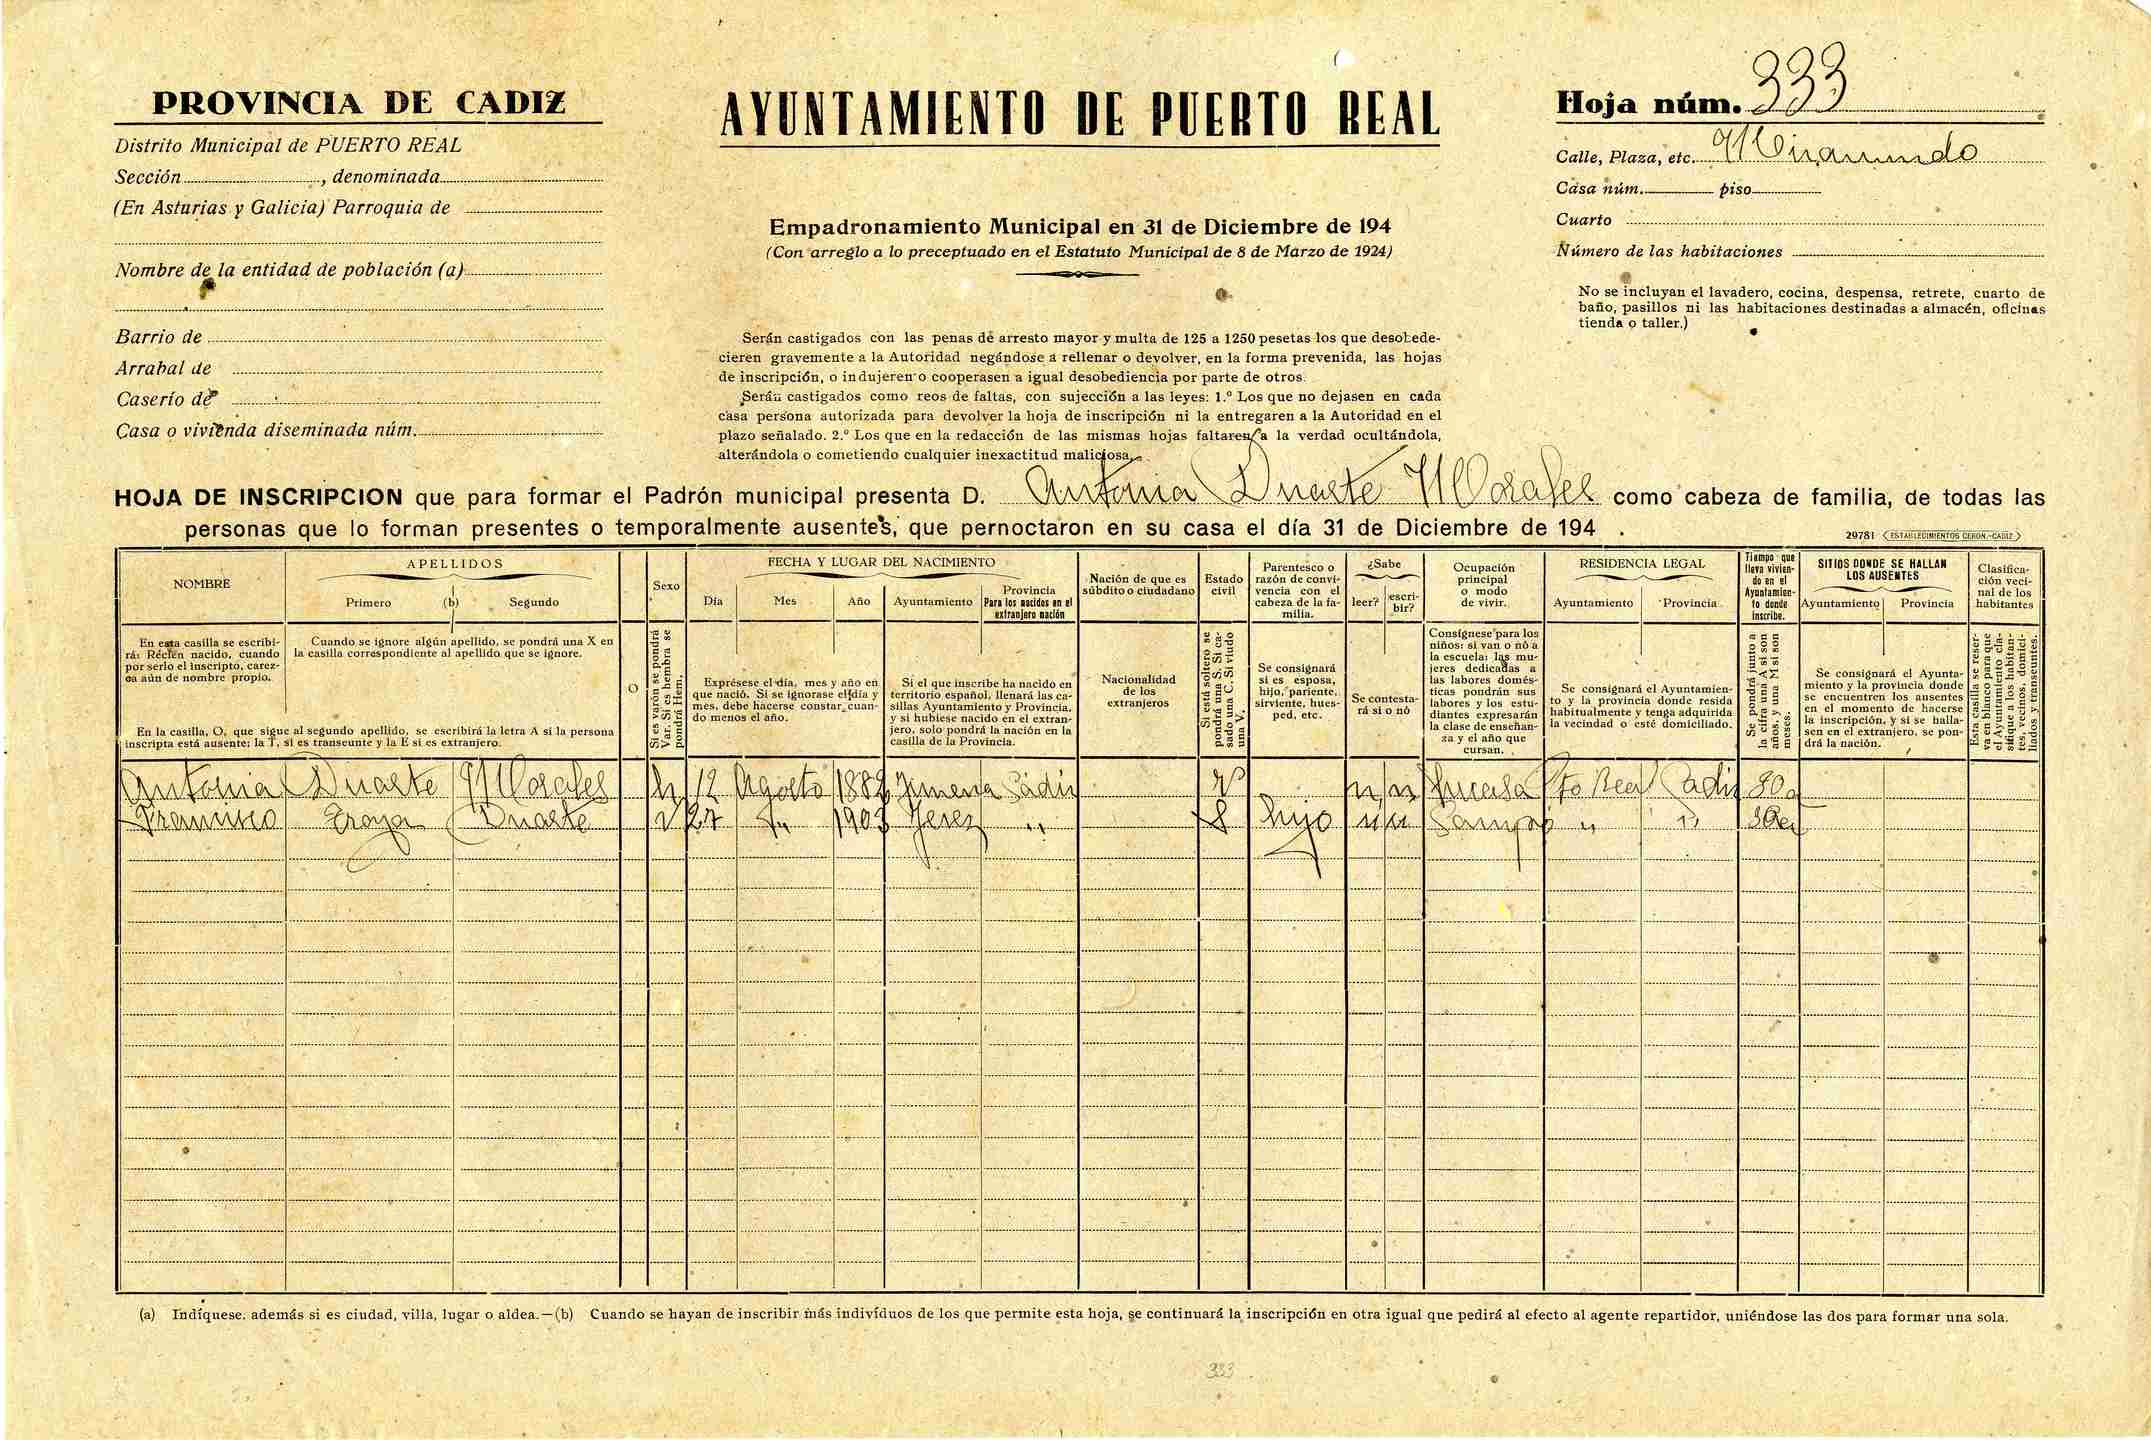 PROVINCIA DE CADIZ
Distrito Municipal de PUERTO REAL
Sección , denominada
(En Asturias y Galicia) Parroquia de
Nombre de la entidad de población (a)
Barrio de
Arrabal de
Caserío de
Casa o vivienda diseminada núm.
AYUNTAMIENTO DE PUERTO REAL
Empadronamiento Municipal en 31 de Diciembre de 194
(Con arreglo a lo preceptuado en el Estatuto Municipal de 8 de Marzo de 1924)
Serán castigados con las penas de arresto mayor y multa de 125 a 1250 pesetas los que desobede-
cieren gravemente a la Autoridad negándose a rellenar o devolver, en la forma prevenida, las hojas
de inscripción, o indujeren o cooperasen a igual desobediencia por parte de otros.
Serán castigados como reos de faltas, con sujección a las leyes: 1.º Los que no dejasen en cada
casa persona autorizada para devolver la hoja de inscripción ni la entregaren a la Autoridad en el
plazo señalado. 2.º Los que en la redacción de las mismas hojas faltaren a la verdad ocultándola,
alterándola o cometiendo cualquier inexactitud maliciosa.
Hoja núm. 333
Calle, Plaza, etc. Miramundo
Casa núm. piso
Cuarto
Número de las habitaciones
No se incluyan el lavadero, cocina, despensa, retrete, cuarto de
baño, pasillos ni las habitaciones destinadas a almacén, oficinas
tienda o taller.)
HOJA DE INSCRIPCION que para formar el Padrón municipal presenta D. Antonia Duarte Morales como cabeza de familia, de todas las
personas que lo forman presentes o temporalmente ausentes, que pernoctaron en su casa el día 31 de Diciembre de 194 .
29781 ESTABLECIMIENTOS CERON.-CADIZ
NOMBRE
En esta casilla se escribi-
rá: Recien nacido, cuando
por serlo el inscripto, carez-
ca aún de nombre propio.
APELLIDOS
Primero (b) Segundo
Cuando se ignore algún apellido, se pondrá una X en
la casilla correspondiente al apellido que se ignore.
En la casilla, O, que sigue al segundo apellido, se escribirá la letra A si la persona
inscripta está ausente; la T, si es transeunte y la E si es extranjero.
O
Sexo
Si es varón se pondrá
Var. Si es hembra se
pondrá Hem.
FECHA Y LUGAR DEL NACIMIENTO
Día Mes Año Ayuntamiento
Provincia
Para los nacidos en el
extranjero nación
Exprésese el día, mes y año en
que nació. Si se ignorase el día y
mes, debe hacerse constar cuan-
do menos el año.
Si el que inscribe ha nacido en
territorio español, llenará las ca-
sillas Ayuntamiento y Provincia,
y si hubiese nacido en el extran-
jero, solo pondrá la nación en la
casilla de la Provincia.
Nación de que es
súbdito o ciudadano
Nacionalidad
de los
extranjeros
Estado
civil
Si está soltero se
pondrá una S. Si ca-
sado una C. Si viudo
una V.
Parentesco o
razón de convi-
vencia con el
cabeza de la fa-
milia.
Se consignará
si es esposa,
hijo, pariente,
sirviente, hues-
ped, etc.
¿Sabe
leer? escri-
bir?
Se contesta-
rá si o nó
Ocupación
principal
o modo
de vivir.
Consígnese para los
niños: si van o nó a
la escuela; las mu-
jeres dedicadas a
las labores domés-
ticas pondrán sus
labores y los estu-
diantes expresarán
la clase de enseñan-
za y el año que
cursan.
RESIDENCIA LEGAL
Ayuntamiento Provincia
Se consignará el Ayuntamien-
to y la provincia donde resida
habitualmente y tenga adquirida
la vecindad o esté domiciliado.
Tiempo que
lleva vivien-
do en el
Ayuntamien-
to donde
inscribe.
Se pondrá junto a
la cifra una A si son
años, y una M si son
meses.
SITIOS DONDE SE HALLAN
LOS AUSENTES
Ayuntamiento Provincia
Se consignará el Ayunta-
miento y la provincia donde
se encuentren los ausentes
en el momento de hacerse
la inscripción, y si se halla-
sen en el extranjero, se pon-
drá la nación.
Clasifica-
ción veci-
nal de los
habitantes
Esta casilla se reser-
va en blanco para que
el Ayuntamiento cla-
sifique a los habitan-
tes, vecinos, domici-
liados y transeuntes.
Antonia Duarte Morales h 12 Agosto 1882 Jimena Cádiz n n Pto Real Cadiz
Francisco Troya Duarte v 27 1903 Jerez " S hijo n n Campo " "
(a) Indíquese. además si es ciudad, villa, lugar o aldea.—(b) Cuando se hayan de inscribir más indivíduos de los que permite esta hoja, se continuará la inscripción en otra igual que pedirá al efecto al agente repartidor, uniéndose las dos para formar una sola.
333